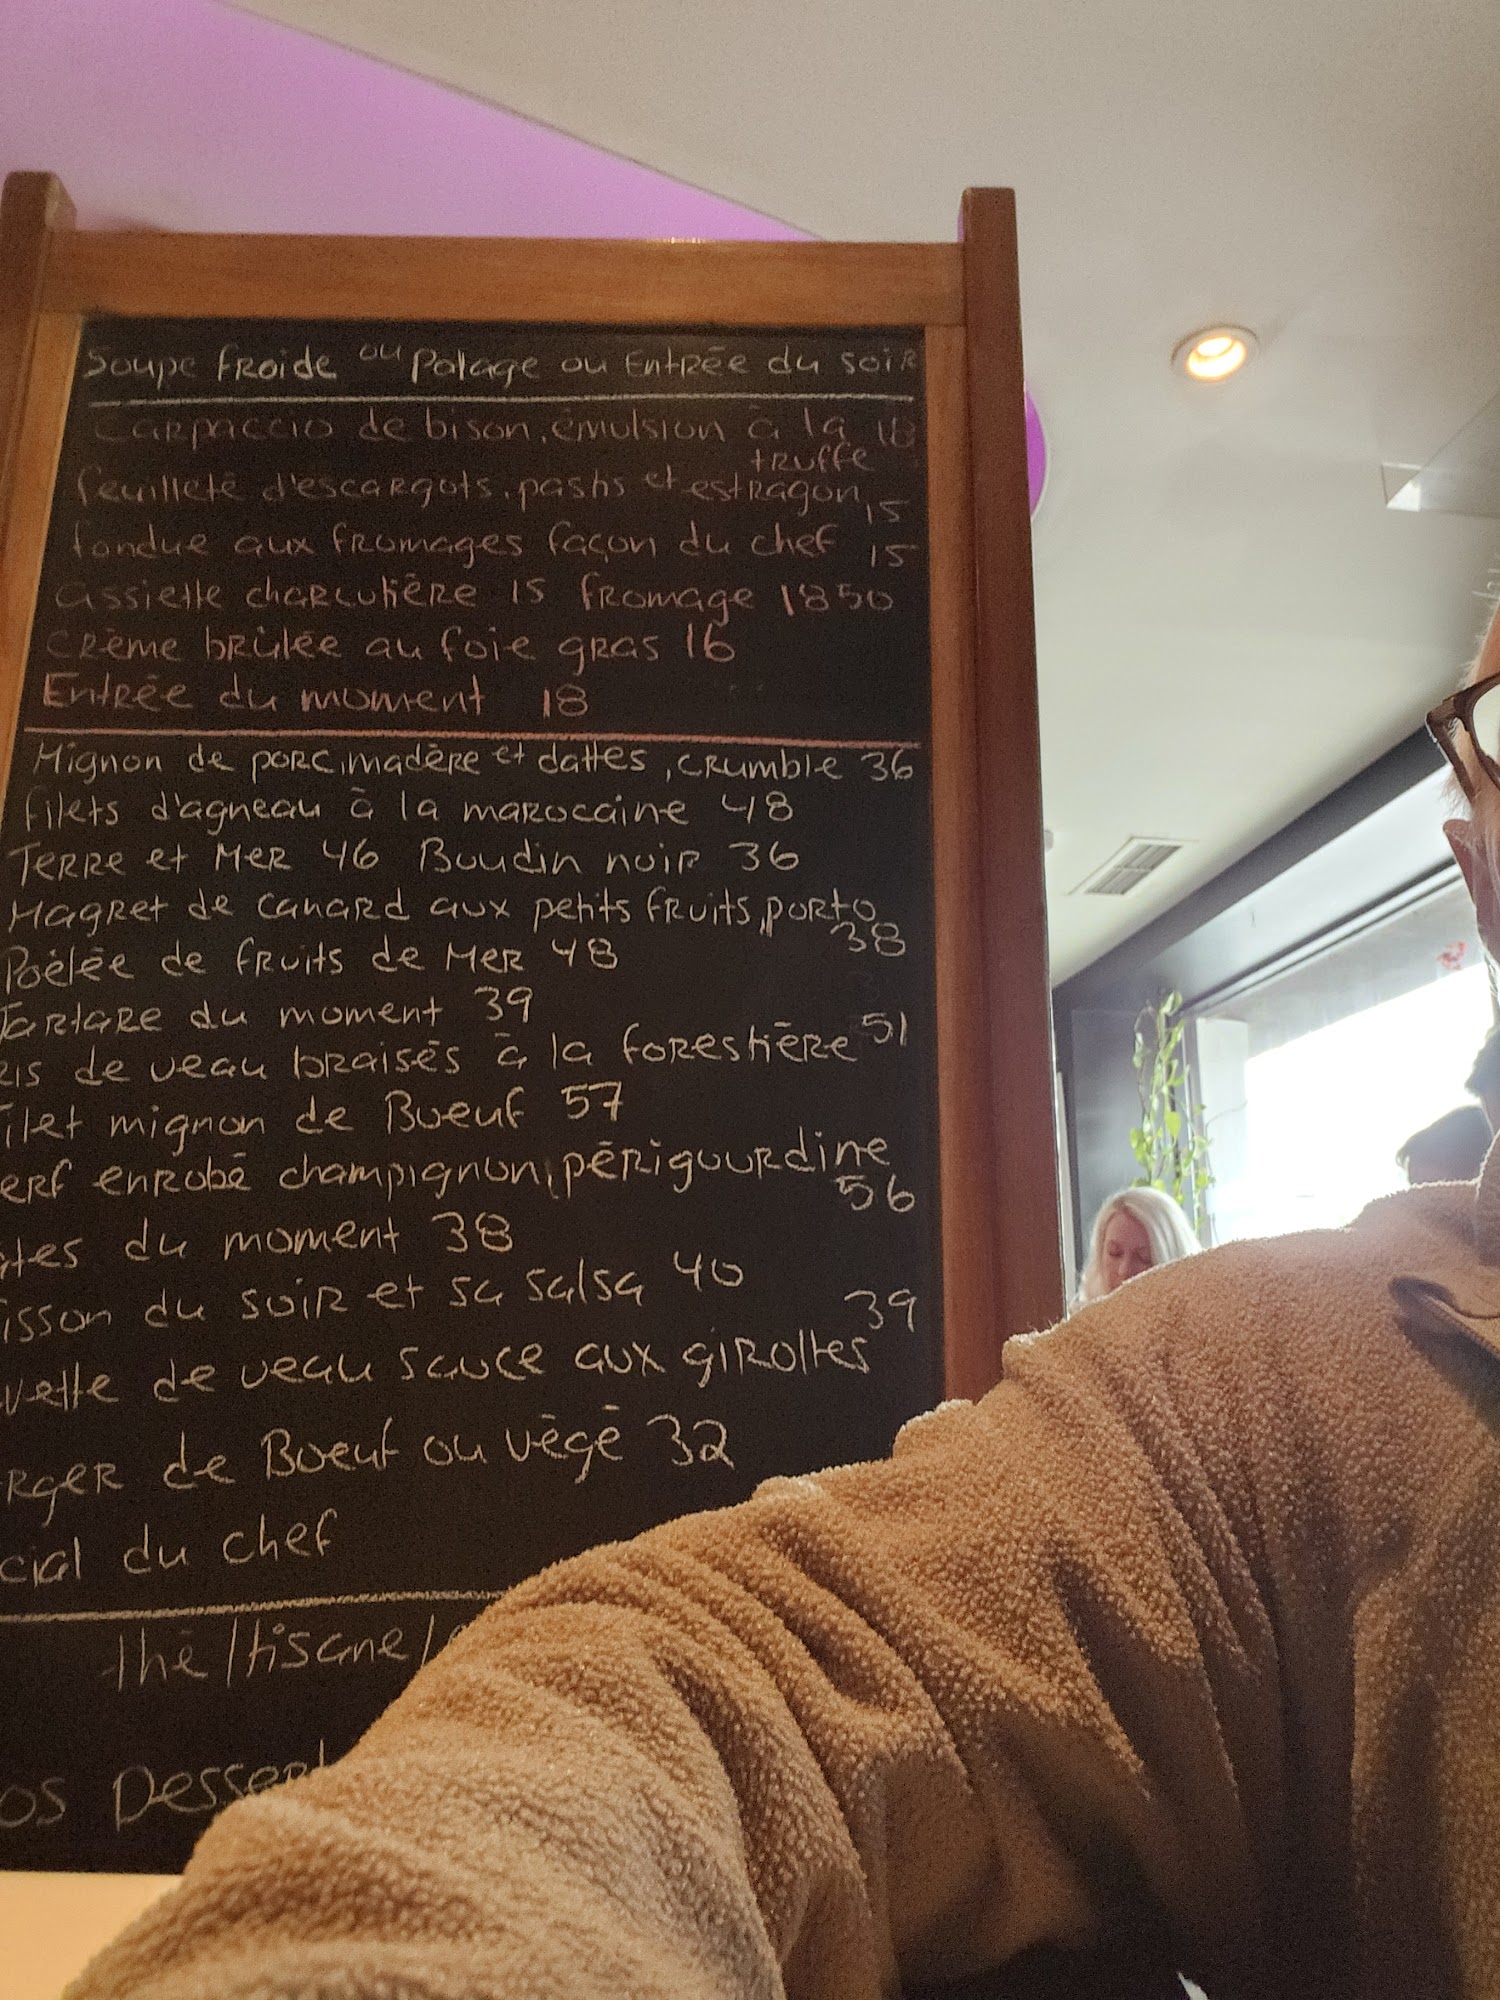 Soupe froide ou Potage ou Entrée du soir
Carpaccio de bison, émulsion à la 18
truffe
feuilleté d'escargots, pastis et estragon
15
fondue aux fromages façon du chef 15
Assiette charcutière 15 fromage 1850
Crème brûlée au foie gras 16
Entrée du moment 18
Mignon de porc, madère et dattes, crumble 36
filets d'agneau à la marocaine 48
Terre et Mer 46 Boudin noir 36
Magret de canard aux petits fruits, porto
38
Poêlée de fruits de Mer 48
Tartare du moment 39
Ris de veau braisés à la forestière 51
filet mignon de Boeuf 57
erf enrobé champignon, périgourdine
56
tes du moment 38
isson du soir et sa salsa 40
39
vette de veau sauce aux girolles
rger de Boeuf ou végé 32
cial du chef
Thé/tisane/
os Dessert